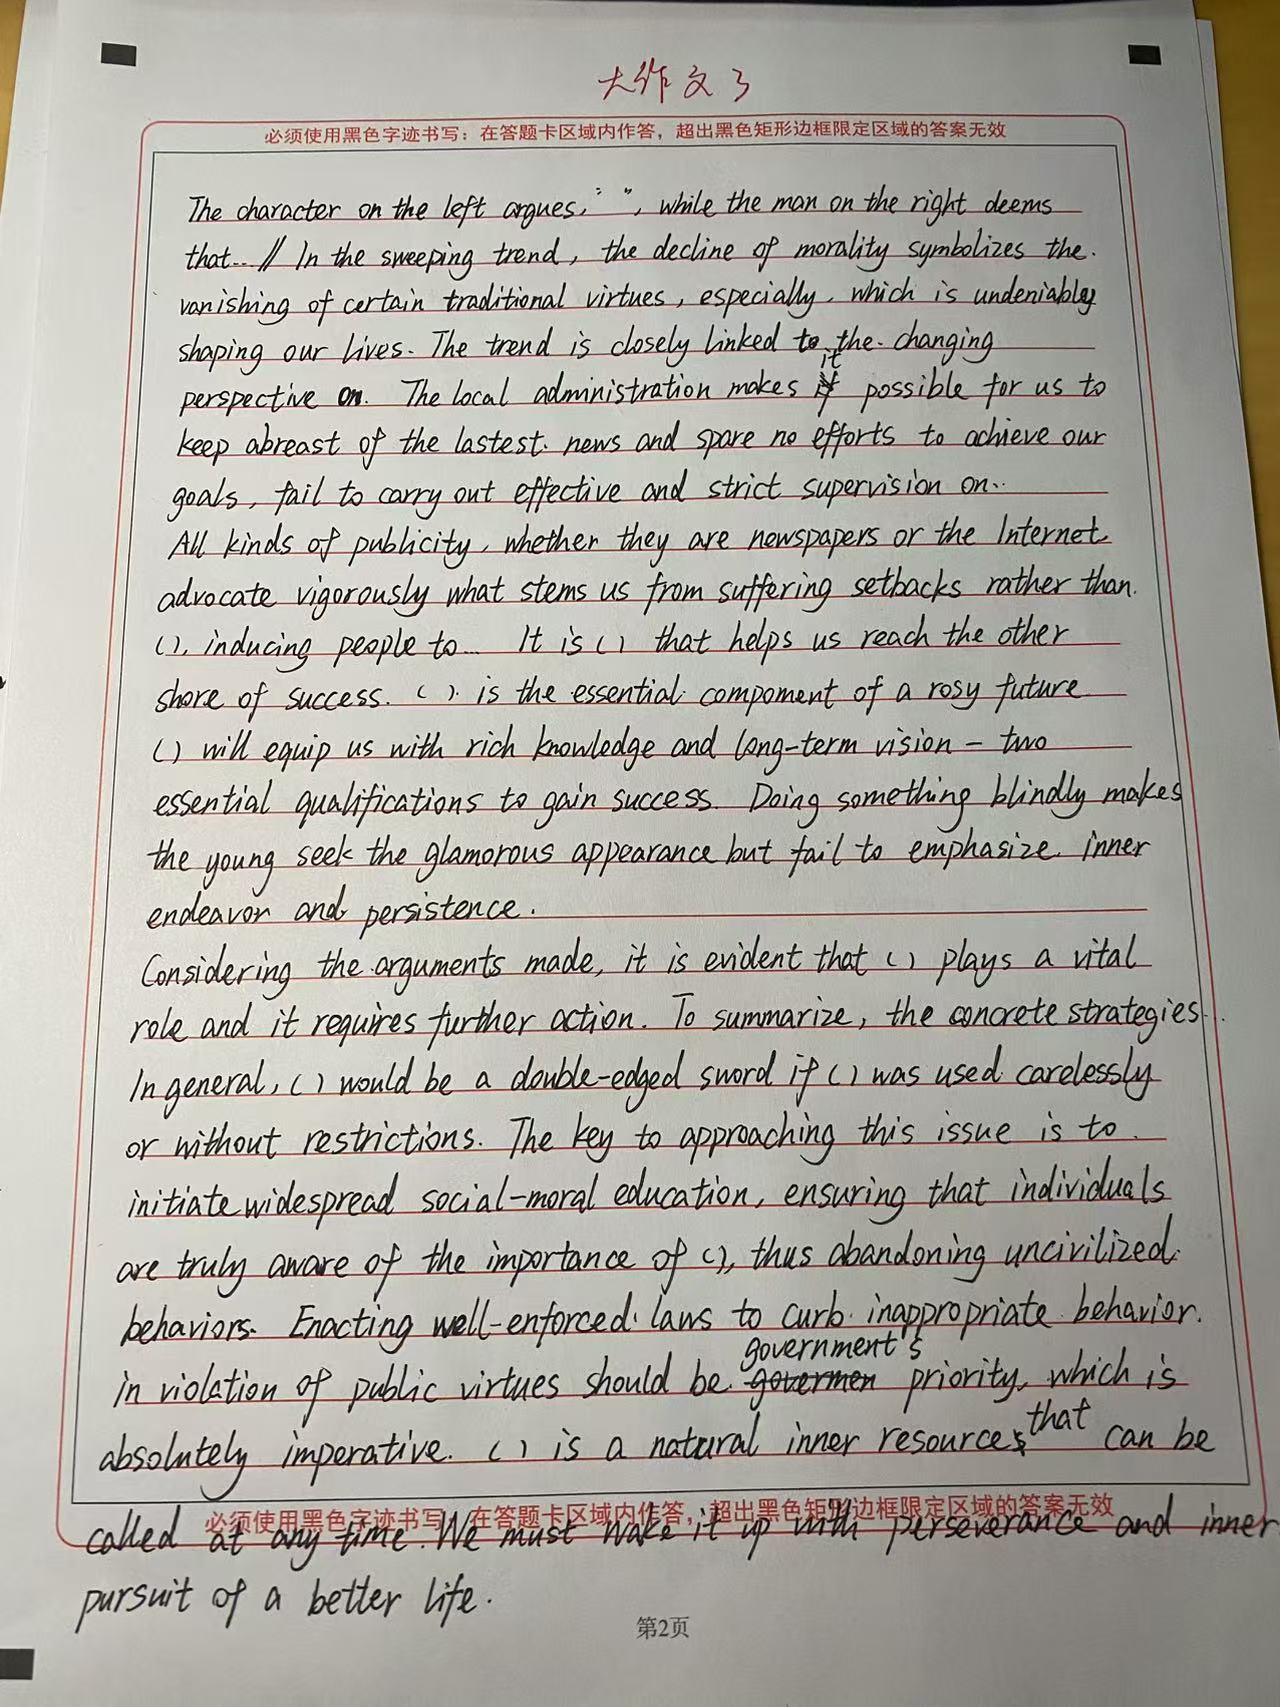 大作文3
必须使用黑色字迹书写：在答题卡区域内作答，超出黑色矩形边框限定区域的答案无效
The character on the left argues, " ", while the man on the right deems
that... // In the sweeping trend, the decline of morality symbolizes the
vanishing of certain traditional virtues, especially, which is undeniably
shaping our lives. The trend is closely linked to the changing
perspective on. The local administration makes it possible for us to
keep abreast of the lastest news and spare no efforts to achieve our
goals, fail to carry out effective and strict supervision on...
All kinds of publicity, whether they are newspapers or the Internet,
advocate vigorously what stems us from suffering setbacks rather than
( ), inducing people to... It is ( ) that helps us reach the other
shore of success. ( ) is the essential compoment of a rosy future
( ) will equip us with rich knowledge and long-term vision – two
essential qualifications to gain success. Doing something blindly makes
the young seek the glamorous appearance but fail to emphasize inner
endeavor and persistence.
Considering the arguments made, it is evident that ( ) plays a vital
role and it requires further action. To summarize, the concrete strategies..
In general, ( ) would be a double-edged sword if ( ) was used carelessly
or without restrictions. The key to approaching this issue is to
initiate widespread social-moral education, ensuring that individuals
are truly aware of the importance of ( ), thus abandoning uncivilized
behaviors. Enacting well-enforced laws to curb inappropriate behavior
in violation of public virtues should be government's priority, which is
absolutely imperative. ( ) is a natural inner resource that can be
必须使用黑色字迹书写：在答题卡区域内作答，超出黑色矩形边框限定区域的答案无效
called at any time. We must wake it up with perseverance and inner
pursuit of a better life.
第2页